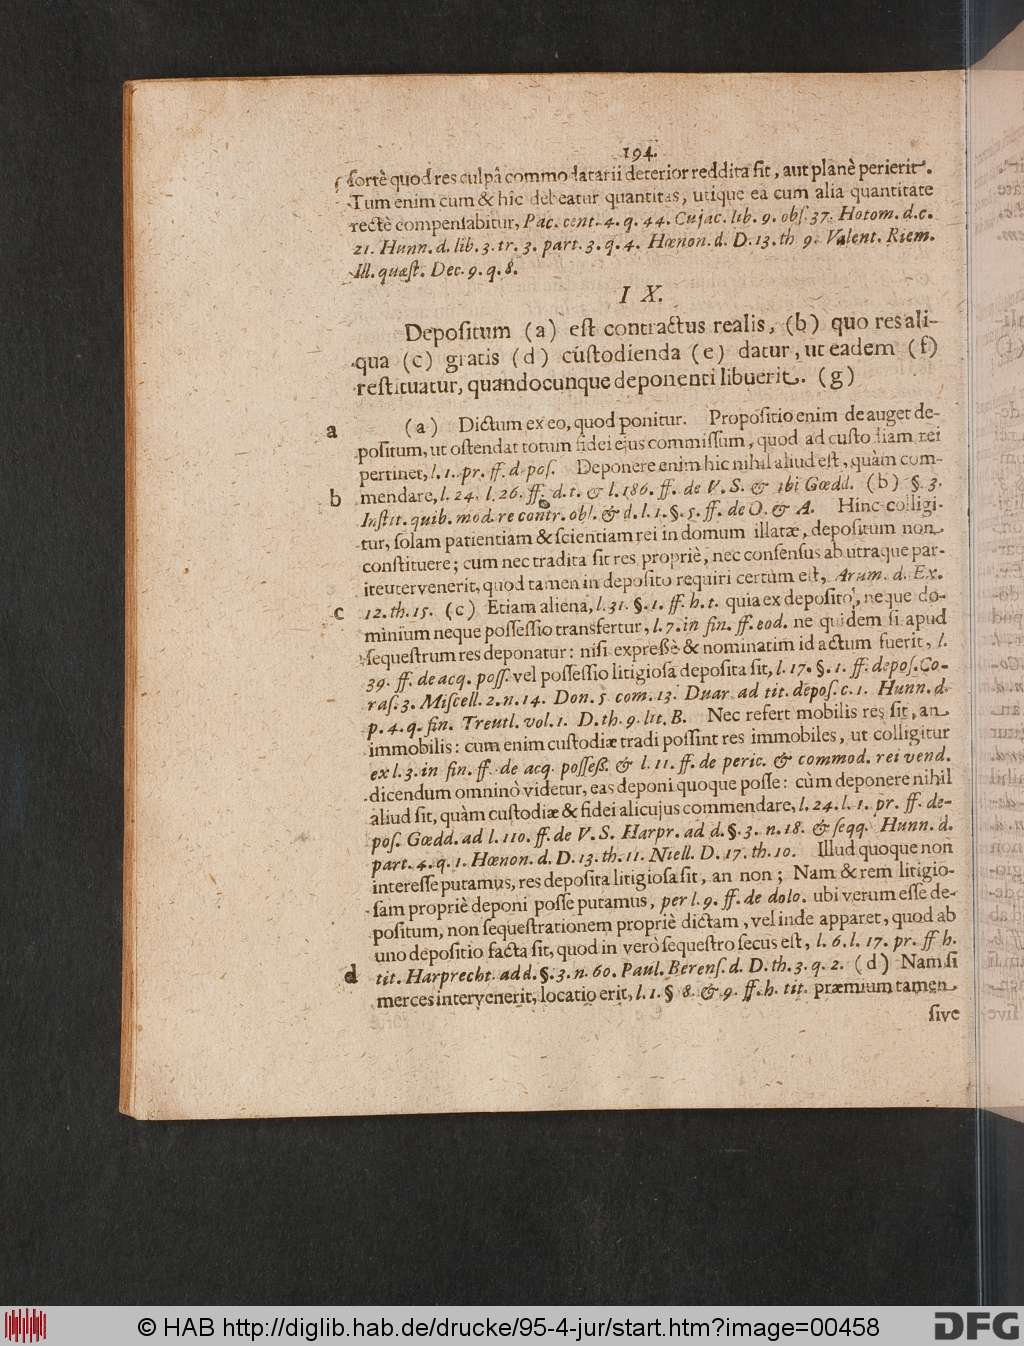 194.
fortè quod res culpâ commodatarii deterior reddita sit, aut planè perierit.
Tum enim cum & hîc debeatur quantitas, utique ea cum alia quantitate
rectè compensabitur, Pac. cent. 4. q. 44. Cujac. lib. 9. obs. 37. Hotom. d. c.
21. Hunn. d. lib. 3. tr. 3. part. 3. q. 4. Hœnon. d. D. 13. th 9. Valent. Riem.
Ill. quæst. Dec. 9. q. 8.
I X.
Depositum (a) est contractus realis, (b) quo res ali-
qua (c) gratis (d) custodienda (e) datur, ut eadem (f)
restituatur, quandocunque deponenti libuerit. (g)
a (a) Dictum ex eo, quod ponitur. Propositio enim de auget de-
positum, ut ostendat totum fidei ejus commissum, quod ad custodiam rei
pertinet, l. 1. pr. ff. depos. Deponere enim hic nihil aliud est, quàm com-
b mendare, l. 24. l. 26. ff. d. t. & l. 186. ff. de V. S. & ibi Gœdd. (b) §. 3.
Instit. quib. mod. re contr. obl. & d. l. 1. §. 5. ff. de O. & A. Hinc colligi-
tur, solam patientiam & scientiam rei in domum illatæ, depositum non
constituere; cum nec tradita sit res propriè, nec consensus ab utraque par-
iteutervenerit, quod tamen in deposito requiri certum est, Arum. d. Ex.
c 12. th. 15. (c) Etiam aliena, l. 31. §. 1. ff. h. t. quia ex deposito, neque do-
minium neque possessio transfertur, l. 7. in fin. ff. eod. ne quidem si apud
sequestrum res deponatur: nisi expreßè & nominatim id actum fuerit, l.
39. ff. de acq. poss. vel possessio litigiosa deposita sit, l. 17. §. 1. ff. depos. Co-
ras. 3. Miscell. 2. n. 14. Don. 5 com. 13. Duar. ad tit. depos. c. 1. Hunn. d.
p. 4. q. fin. Treutl. vol. 1. D. th. 9. lit. B. Nec refert mobilis res sit, an
immobilis: cum enim custodiæ tradi possint res immobiles, ut colligitur
ex l. 3. in fin. ff. de acq. posseß. & l. 11. ff. de peric. & commod. rei vend.
dicendum omninò videtur, eas deponi quoque posse: cùm deponere nihil
aliud sit, quàm custodiæ & fidei alicujus commendare, l. 24. l. 1. pr. ff. de-
pos. Gœdd. ad l. 110. ff. de V. S. Harpr. ad d. §. 3. n. 18. & seqq. Hunn. d.
part. 4. q. 1. Hœnon. d. D. 13. th. 11. Niell. D. 17. th. 10. Illud quoque non
interesse putamus, res deposita litigiosa sit, an non; Nam & rem litigio-
sam propriè deponi posse putamus, per l. 9. ff. de dolo. ubi verum esse de-
positum, non sequestrationem propriè dictam, vel inde apparet, quod ab
uno depositio facta sit, quod in verò sequestro secus est, l. 6. l. 17. pr. ff h.
d tit. Harprecht. ad d. §. 3. n. 60. Paul. Berens. d. D. th. 3. q. 2. (d) Nam si
merces intervenerit, locatio erit, l. 1. § 8. & 9. ff. h. tit. præmium tamen
sive
© HAB http://diglib.hab.de/drucke/95-4-jur/start.htm?image=00458
DFG